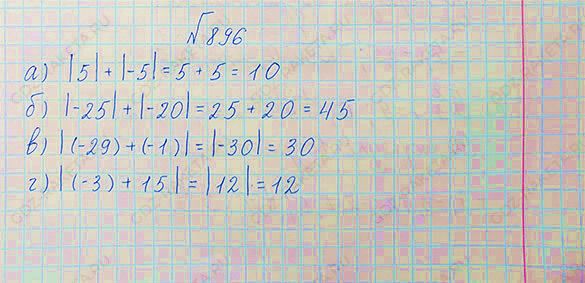 №896
а) |5| + |-5| = 5 + 5 = 10
б) |-25| + |-20| = 25 + 20 = 45
в) |(-29) + (-1)| = |-30| = 30
г) |(-3) + 15| = |12| = 12